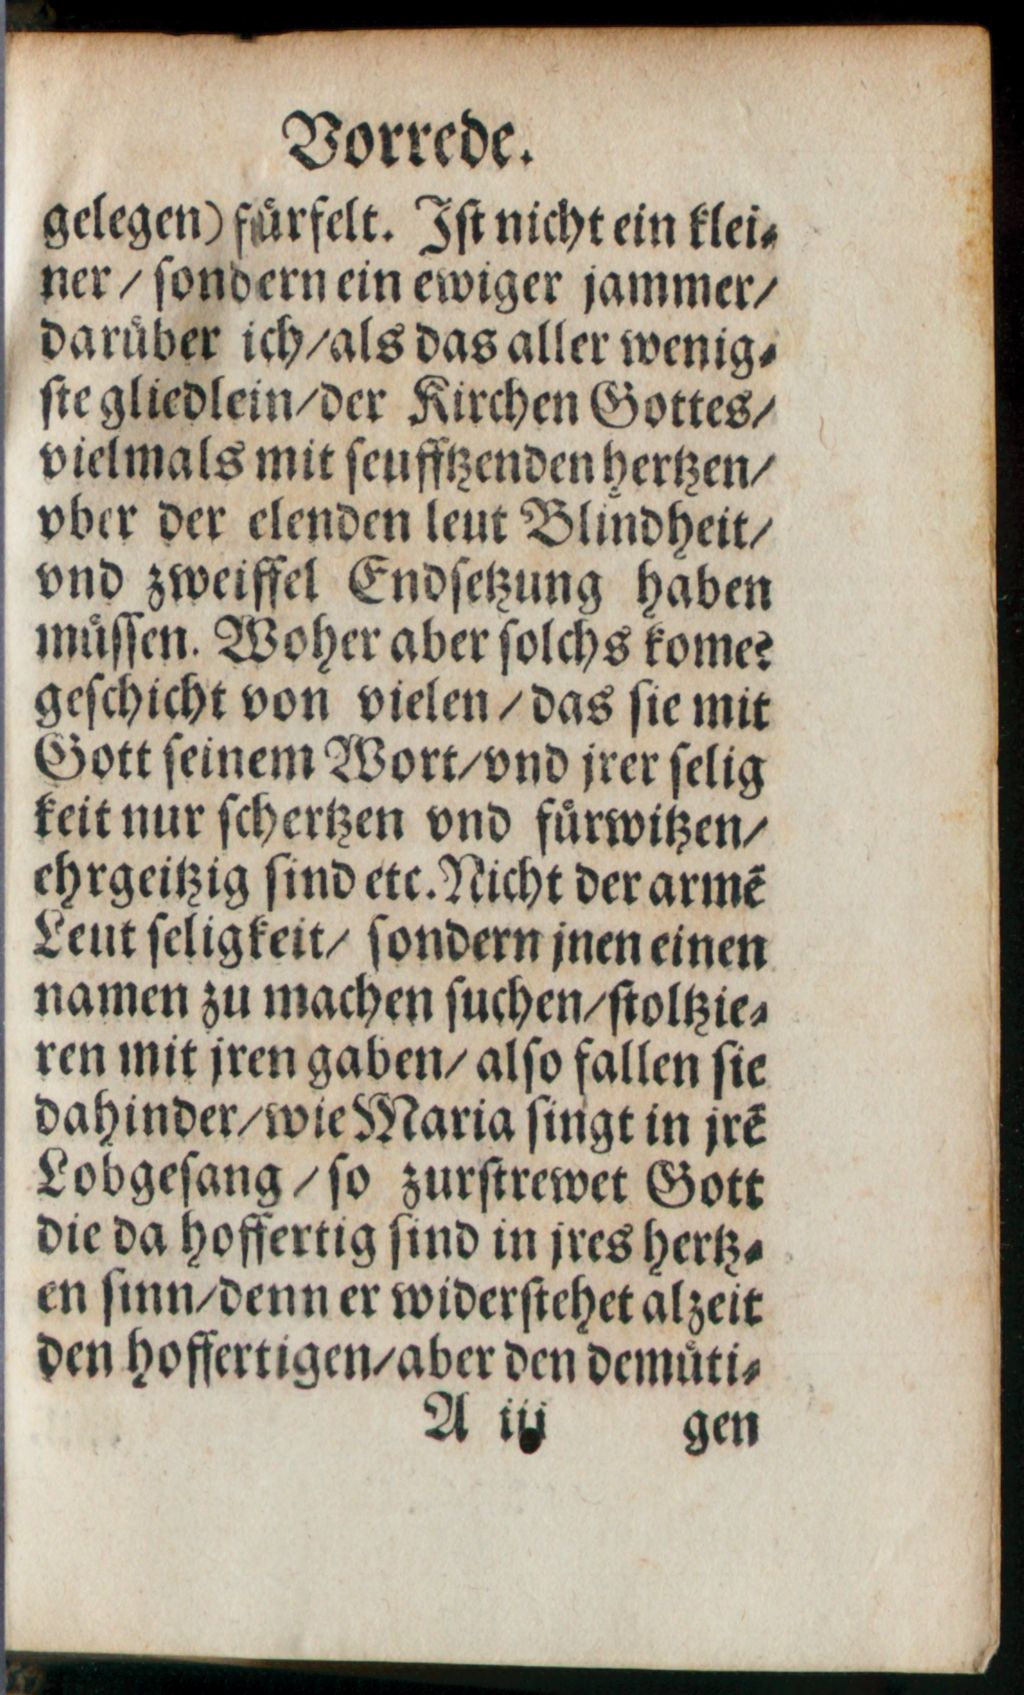 Vorrede.
gelegen) fuͤrfelt. Iſt nicht ein klei⸗
ner / ſondern ein ewiger jammer /
daruͤber ich / als das aller wenig⸗
ſte gliedlein / der Kirchen Gottes /
vielmals mit ſeufftzenden hertzen /
vber der elenden leut Blindheit /
vnd zweiffel Endſetzung haben
muͤſſen. Woher aber ſolchs kome?
geſchicht von vielen / das ſie mit
Gott ſeinem Wort / vnd jrer ſelig
keit nur ſchertzen vnd fuͤrwitzen /
ehrgeitzig ſind etc. Nicht der armē
Leut ſeligkeit / ſondern jnen einen
namen zu machen ſuchen / ſtoltzie⸗
ren mit jren gaben / alſo fallen ſie
dahinder / wie Maria ſingt in jrē
Lobgeſang / ſo zurſtrewet Gott
die da hoffertig ſind in jres hertz⸗
en ſinn / denn er widerſtehet alzeit
den hoffertigen / aber den demuͤti⸗
A iij gen